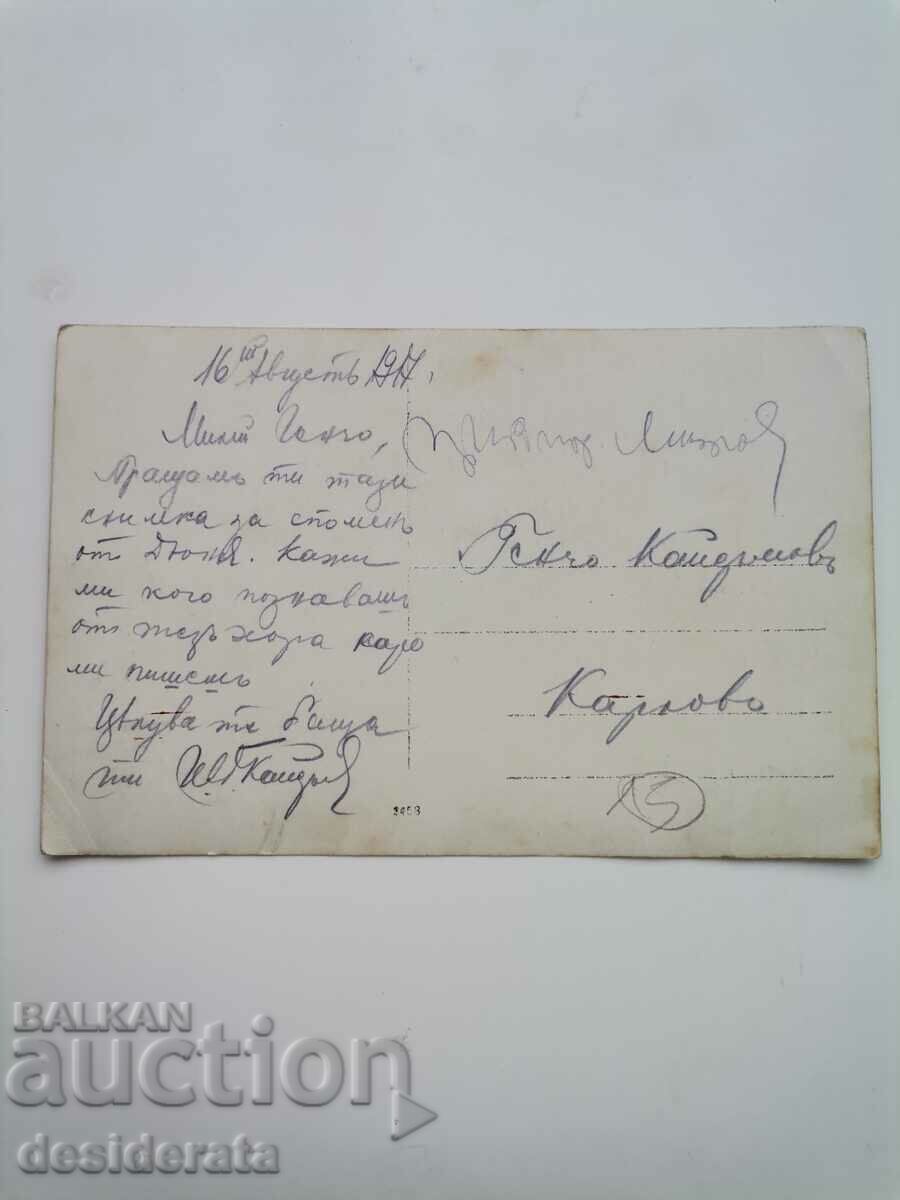 16ий Августъ 1917,
Милий Генчо,
Пращамъ ти тази
снимка за споменъ
от Дюня. Кажи
ми кого познавашъ
от тезъ хора като
ми пишешъ
Цѣлува те баща
ти
Генчо Кандимовъ
Карлово
15
3468
BALKAN
auction
desiderata